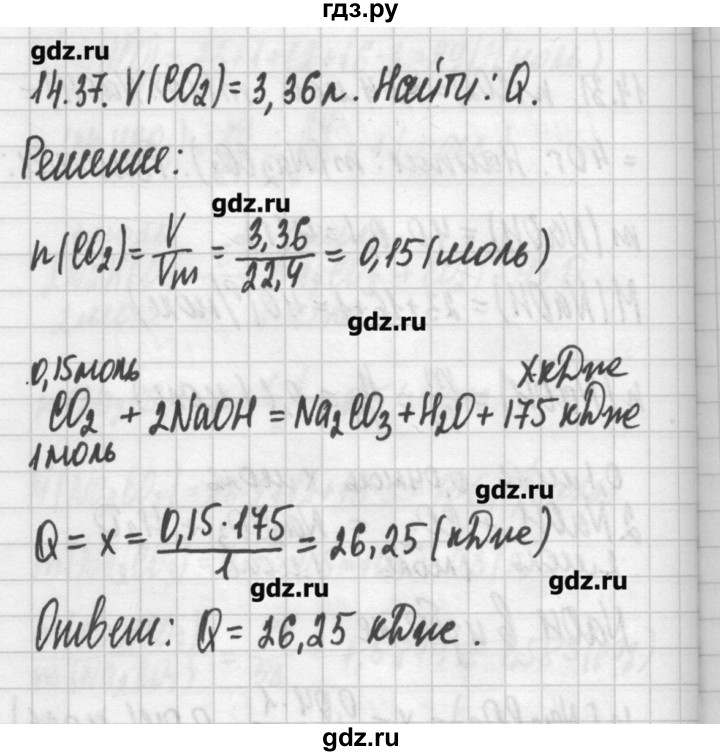 гдз.ру
gdz.ru
14.37. V(CO2) = 3,36 л. Найти: Q.
Решение:
gdz.ru
n(CO2) = V/Vm = 3,36/22,4 = 0,15 (моль)
gdz.ru
0,15 моль xкДже
CO2 + 2NaOH = Na2CO3 + H2O + 175 кДже
1 моль
gdz.ru
Q = x = 0,15·175/1 = 26,25 (кДже)
gdz.ru
gdz.ru
Ответ: Q = 26,25 кДже.
gdz.ru